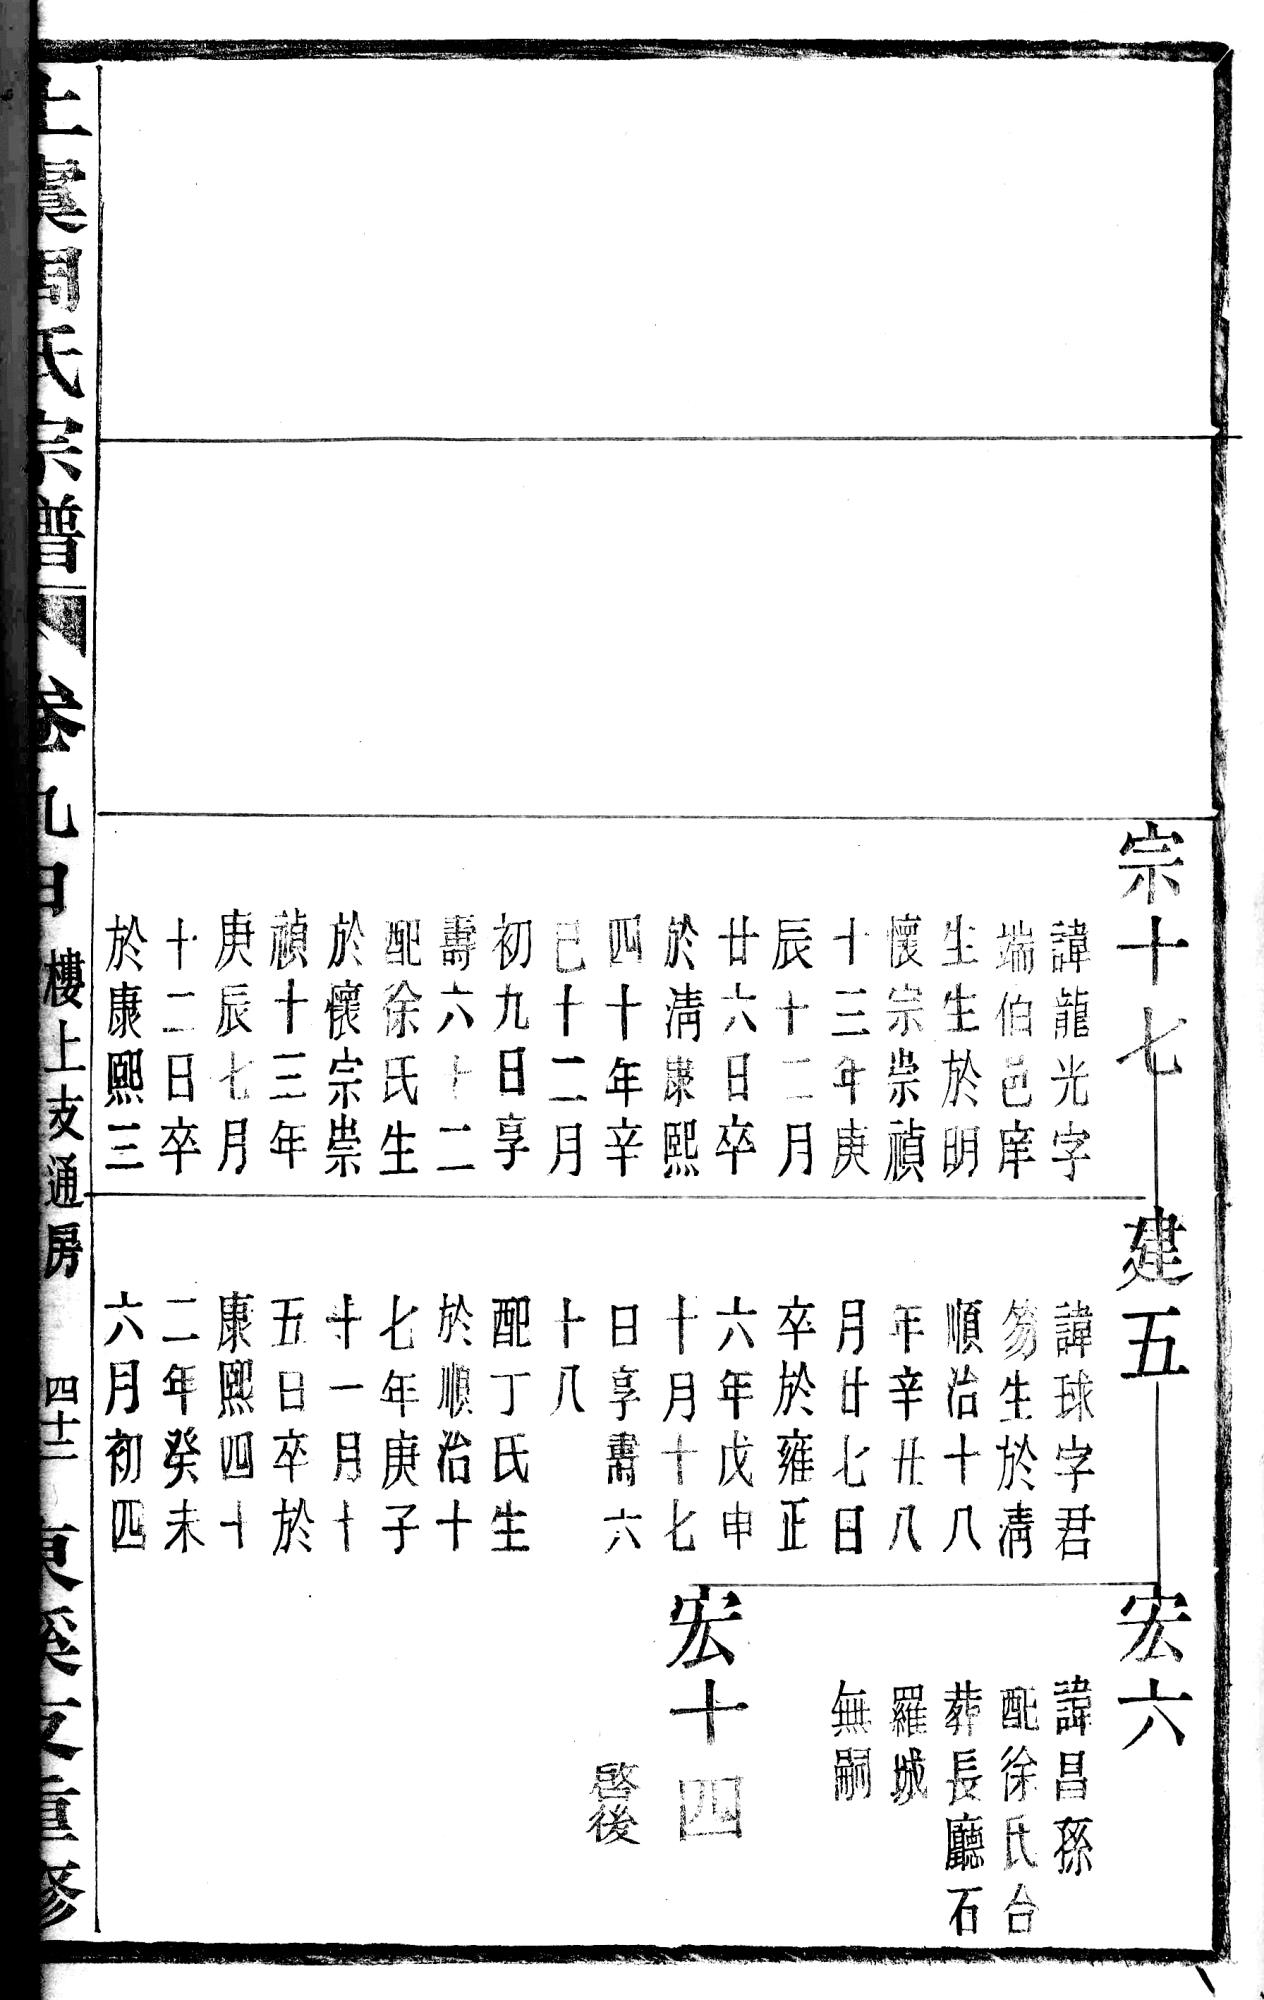 宗十七
諱龍光字
端伯邑庠
生生於明
懷宗崇禎
十三年庚
辰十二月
廿六日卒
於淸康熙
四十年辛
巳十二月
初九日享
壽六十二
配徐氏生
於懷宗崇
禎十三年
庚辰七月
十二日卒
於康熙三
建五
諱球字君
笏生於淸
順治十八
年辛丑八
月廿七日
卒於雍正
六年戊申
十月十七
日享壽六
十八
配丁氏生
於順治十
七年庚子
十一月十
五日卒於
康熙四十
二年癸未
六月初四
宏六
諱昌孫
配徐氏合
葬長廳石
羅城
無嗣
宏十四
啓後
上虞周氏宗譜
卷九甲 樓上支通房
四十二
東溪支重修